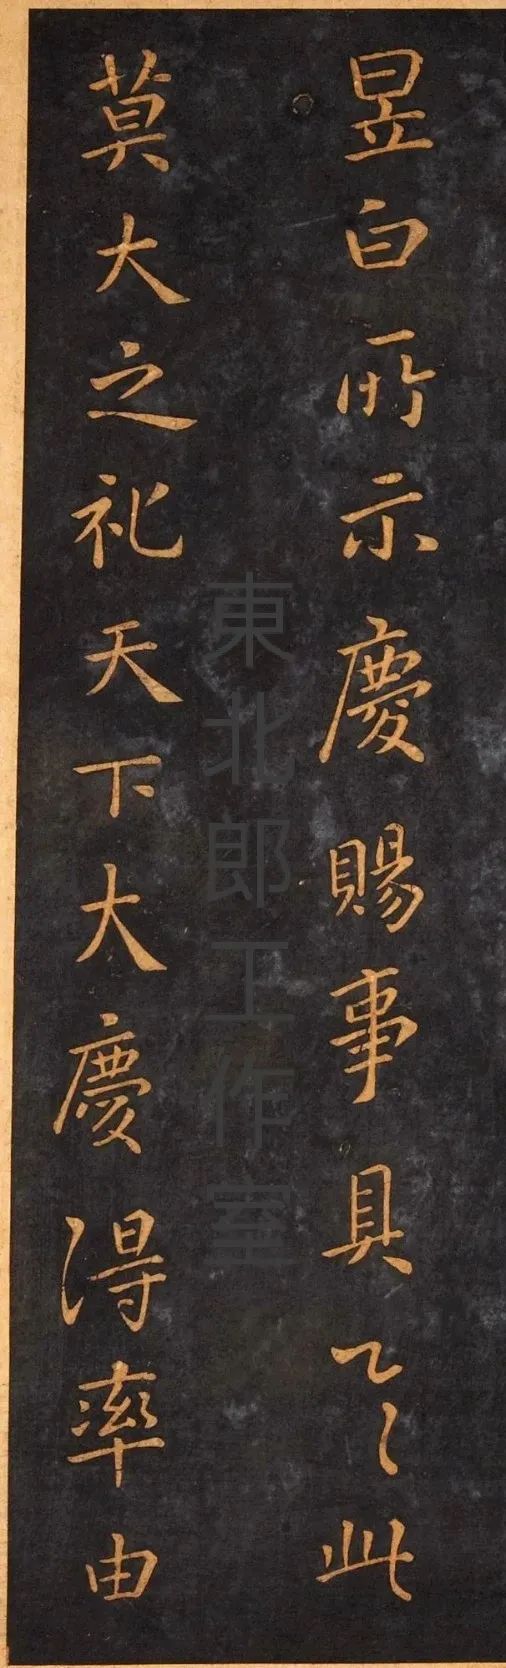 昱白所示慶賜事具此
莫大之祀天下大慶得率由
東北郎工作室